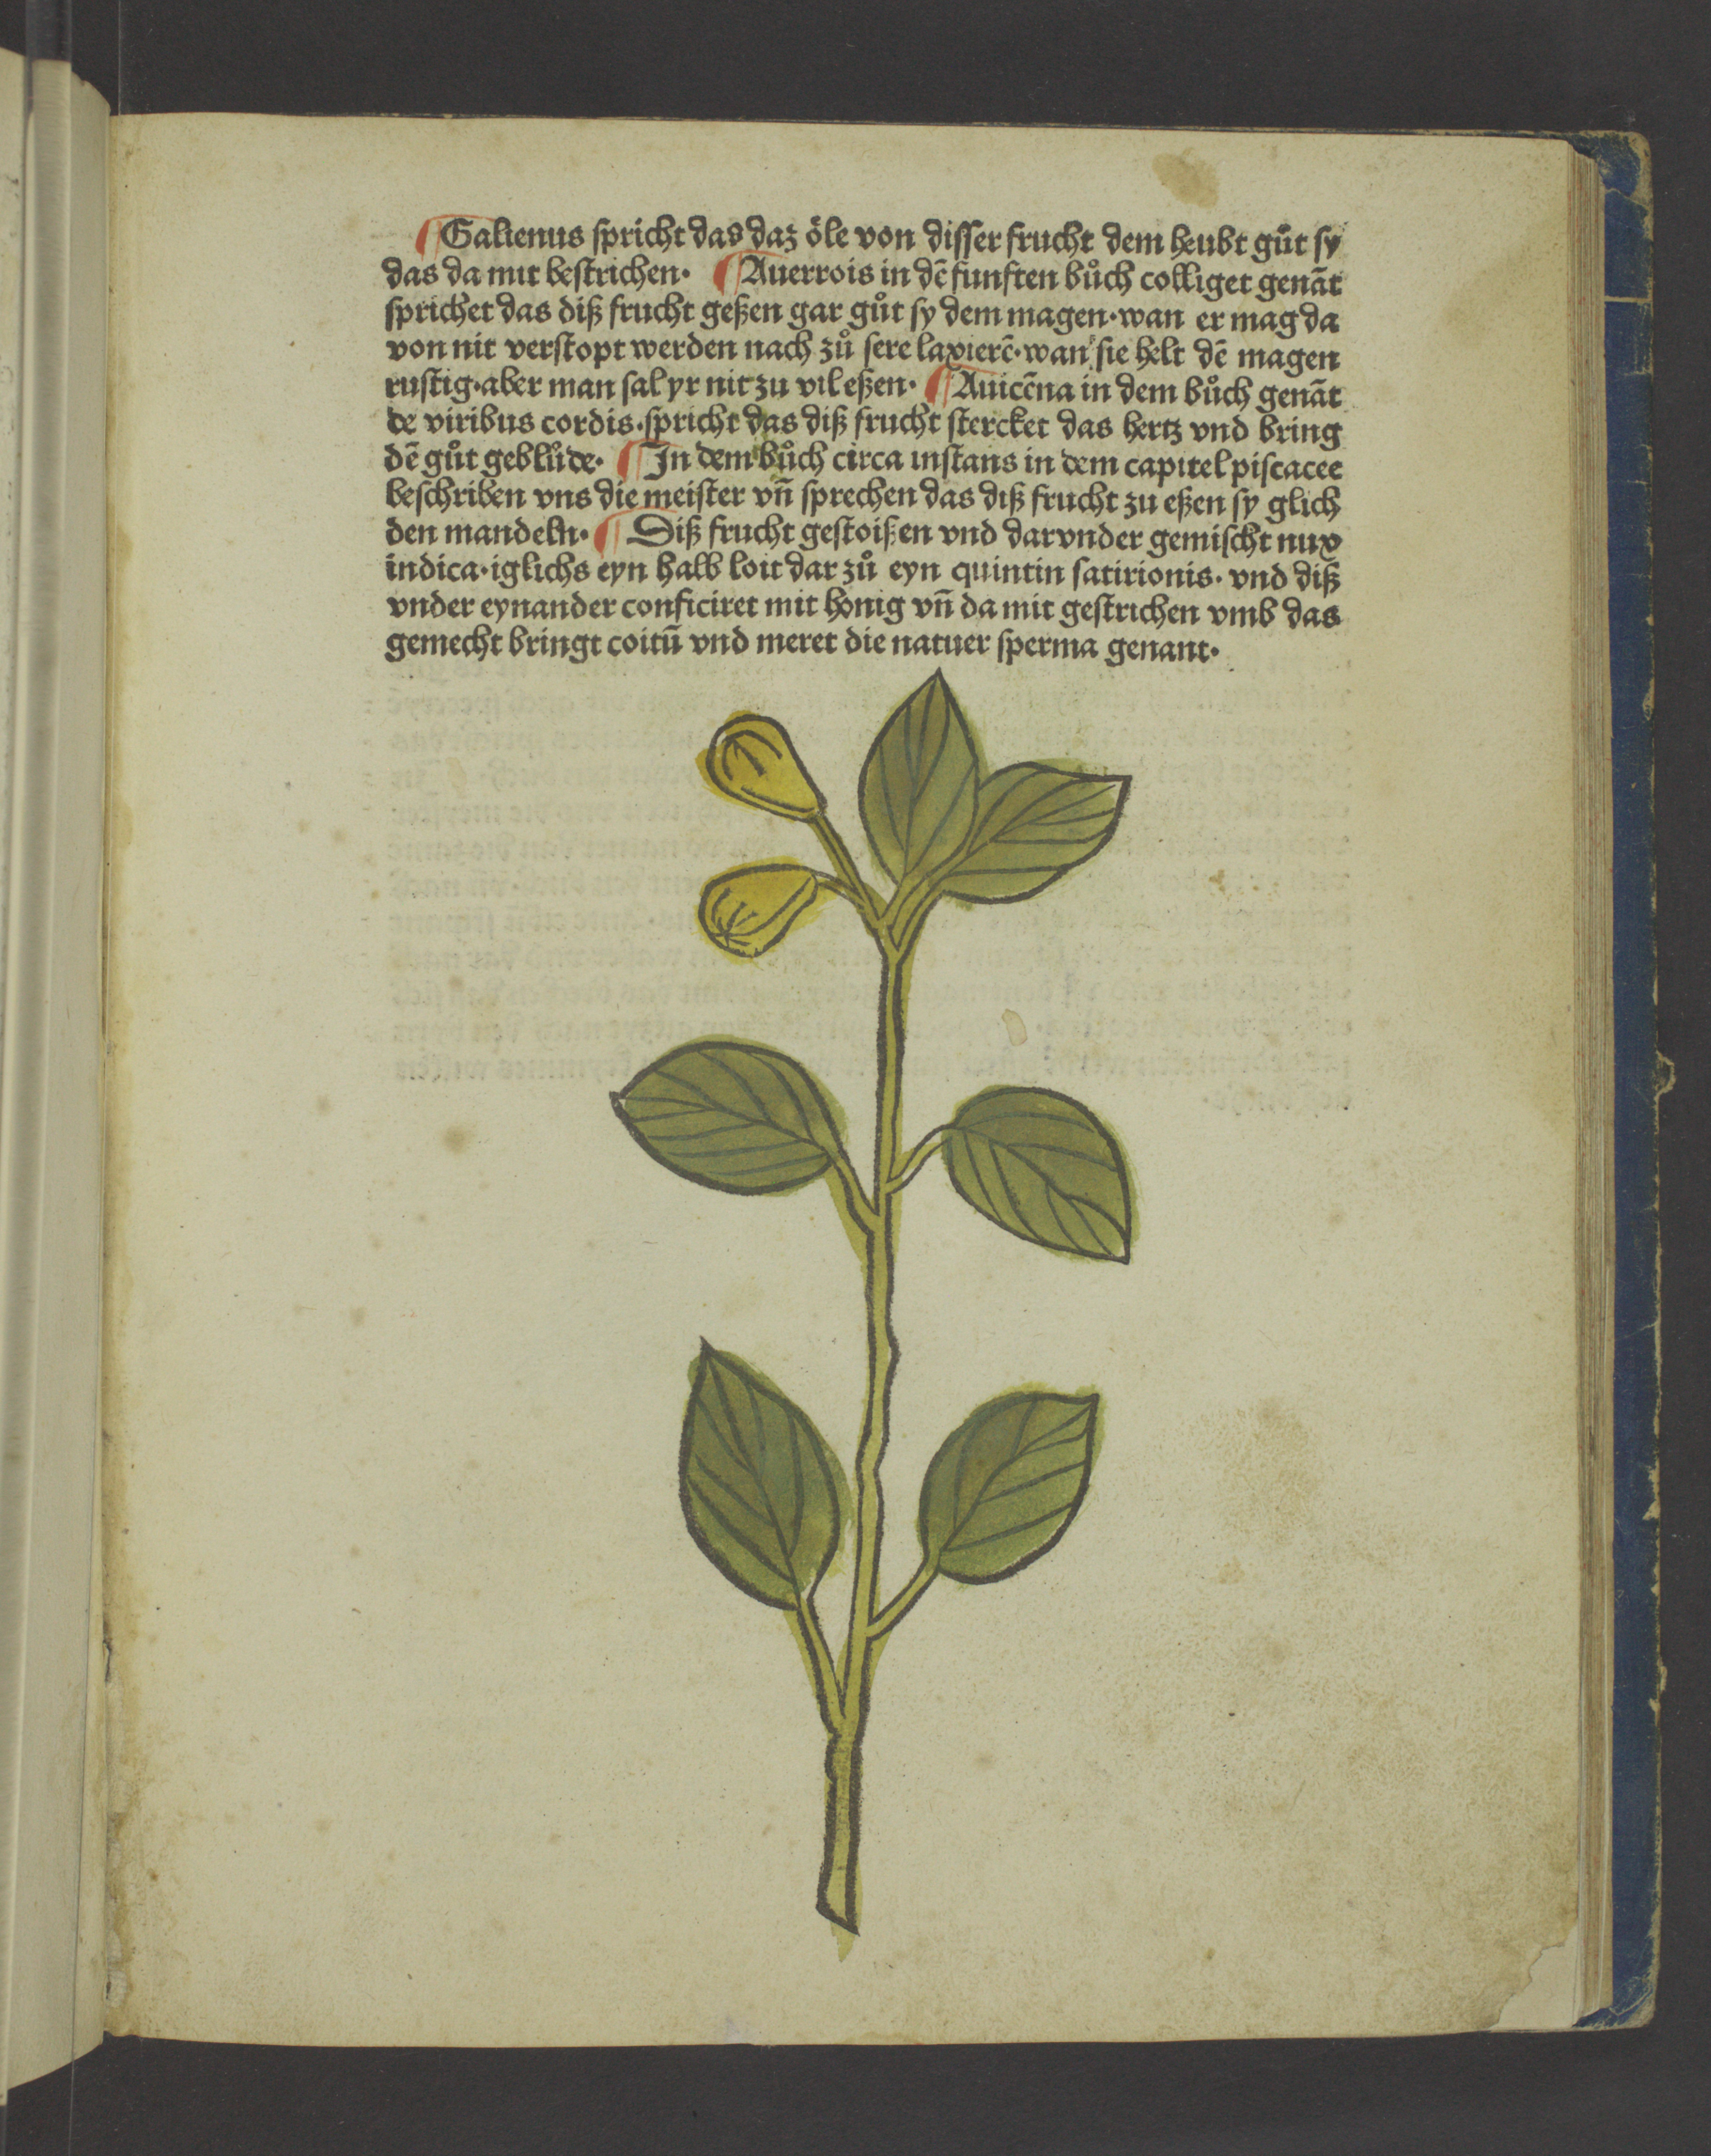 ¶ Galienus spricht das daz öle von disser frucht dem heubt gůt sy
das da mit bestrichen· ¶ Auerrois in dē funfften bůch colliget genāt
sprichet das diß frucht geßen gar gůt sy dem magen·wan er mag da
von nit verstopt werden nach zů sere laxierē·wan sie helt dē magen
rustig·aber man sal yr nit zu vil eßen· ¶ Auicēna in dem bůch genāt
de viribus cordis·spricht das diß frucht stercket das hertz vnd bring
dē gůt geblůde· ¶ In dem bůch circa instans in dem capitel piscacee
beschriben vns die meister vn̄ sprechen das diß frucht zu eßen sy glich
den mandeln· ¶ Diß frucht gestoißen vnd darvnder gemischt nux
indica·iglichs eyn halb loit dar zů eyn quintin satirionis· vnd diß
vnder eynander conficiret mit honig vn̄ da mit gestrichen vmb das
gemecht bringt coitū vnd meret die natuer sperma genant·